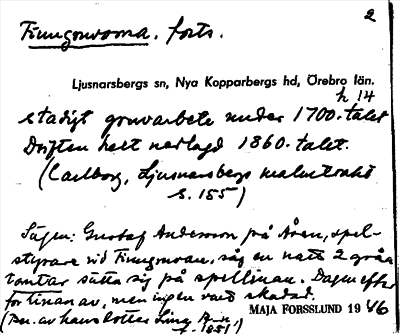 2
Finngruvorna. forts.
Ljusnarsbergs sn, Nya Kopparbergs hd, Örebro län.
h 14
stadigt gruvarbete under 1700-talet
Driften helt nerlagd 1860-talet.
(Carlborg, Ljusnarsbergs malmtrakt
s. 155)
Sägen: Gustaf Andersson på Åsen, spel-
styrare vid Finngruvan, såg en natt 2 grå
tomtar sätta sig på spellinan. Dagen efter
for linan av, men ingen vart skadad.
(Ber. av hans dotter
f. 1851)
MAJA FORSSLUND 1946